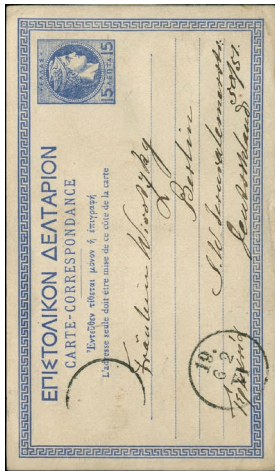 ΕΛΛΑΣ
15 ΛΕΠΤΑ 15
ΕΠΙΣΤΟΛΙΚΟΝ ΔΕΛΤΑΡΙΟΝ
CARTE-CORRESPONDANCE
Ἐντεῦθεν τίθεται μόνον ἡ ἐπιγραφή
L'adresse seule doit être mise de ce côté de la carte
Fräulein
Berlin
S.W.
Deutschland
19.
6 2